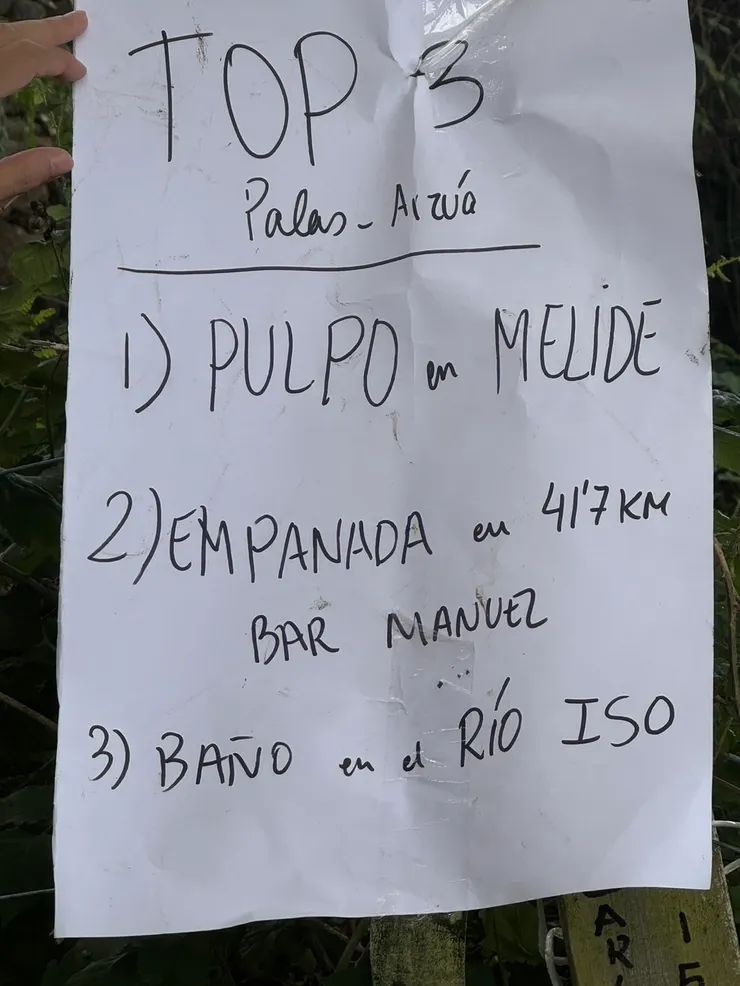 TOP 3
Palas - Arzúa
1) PULPO en MELIDE
2) EMPANADA en 41'7 KM
BAR MANUEL
3) BAÑO en el RÍO ISO